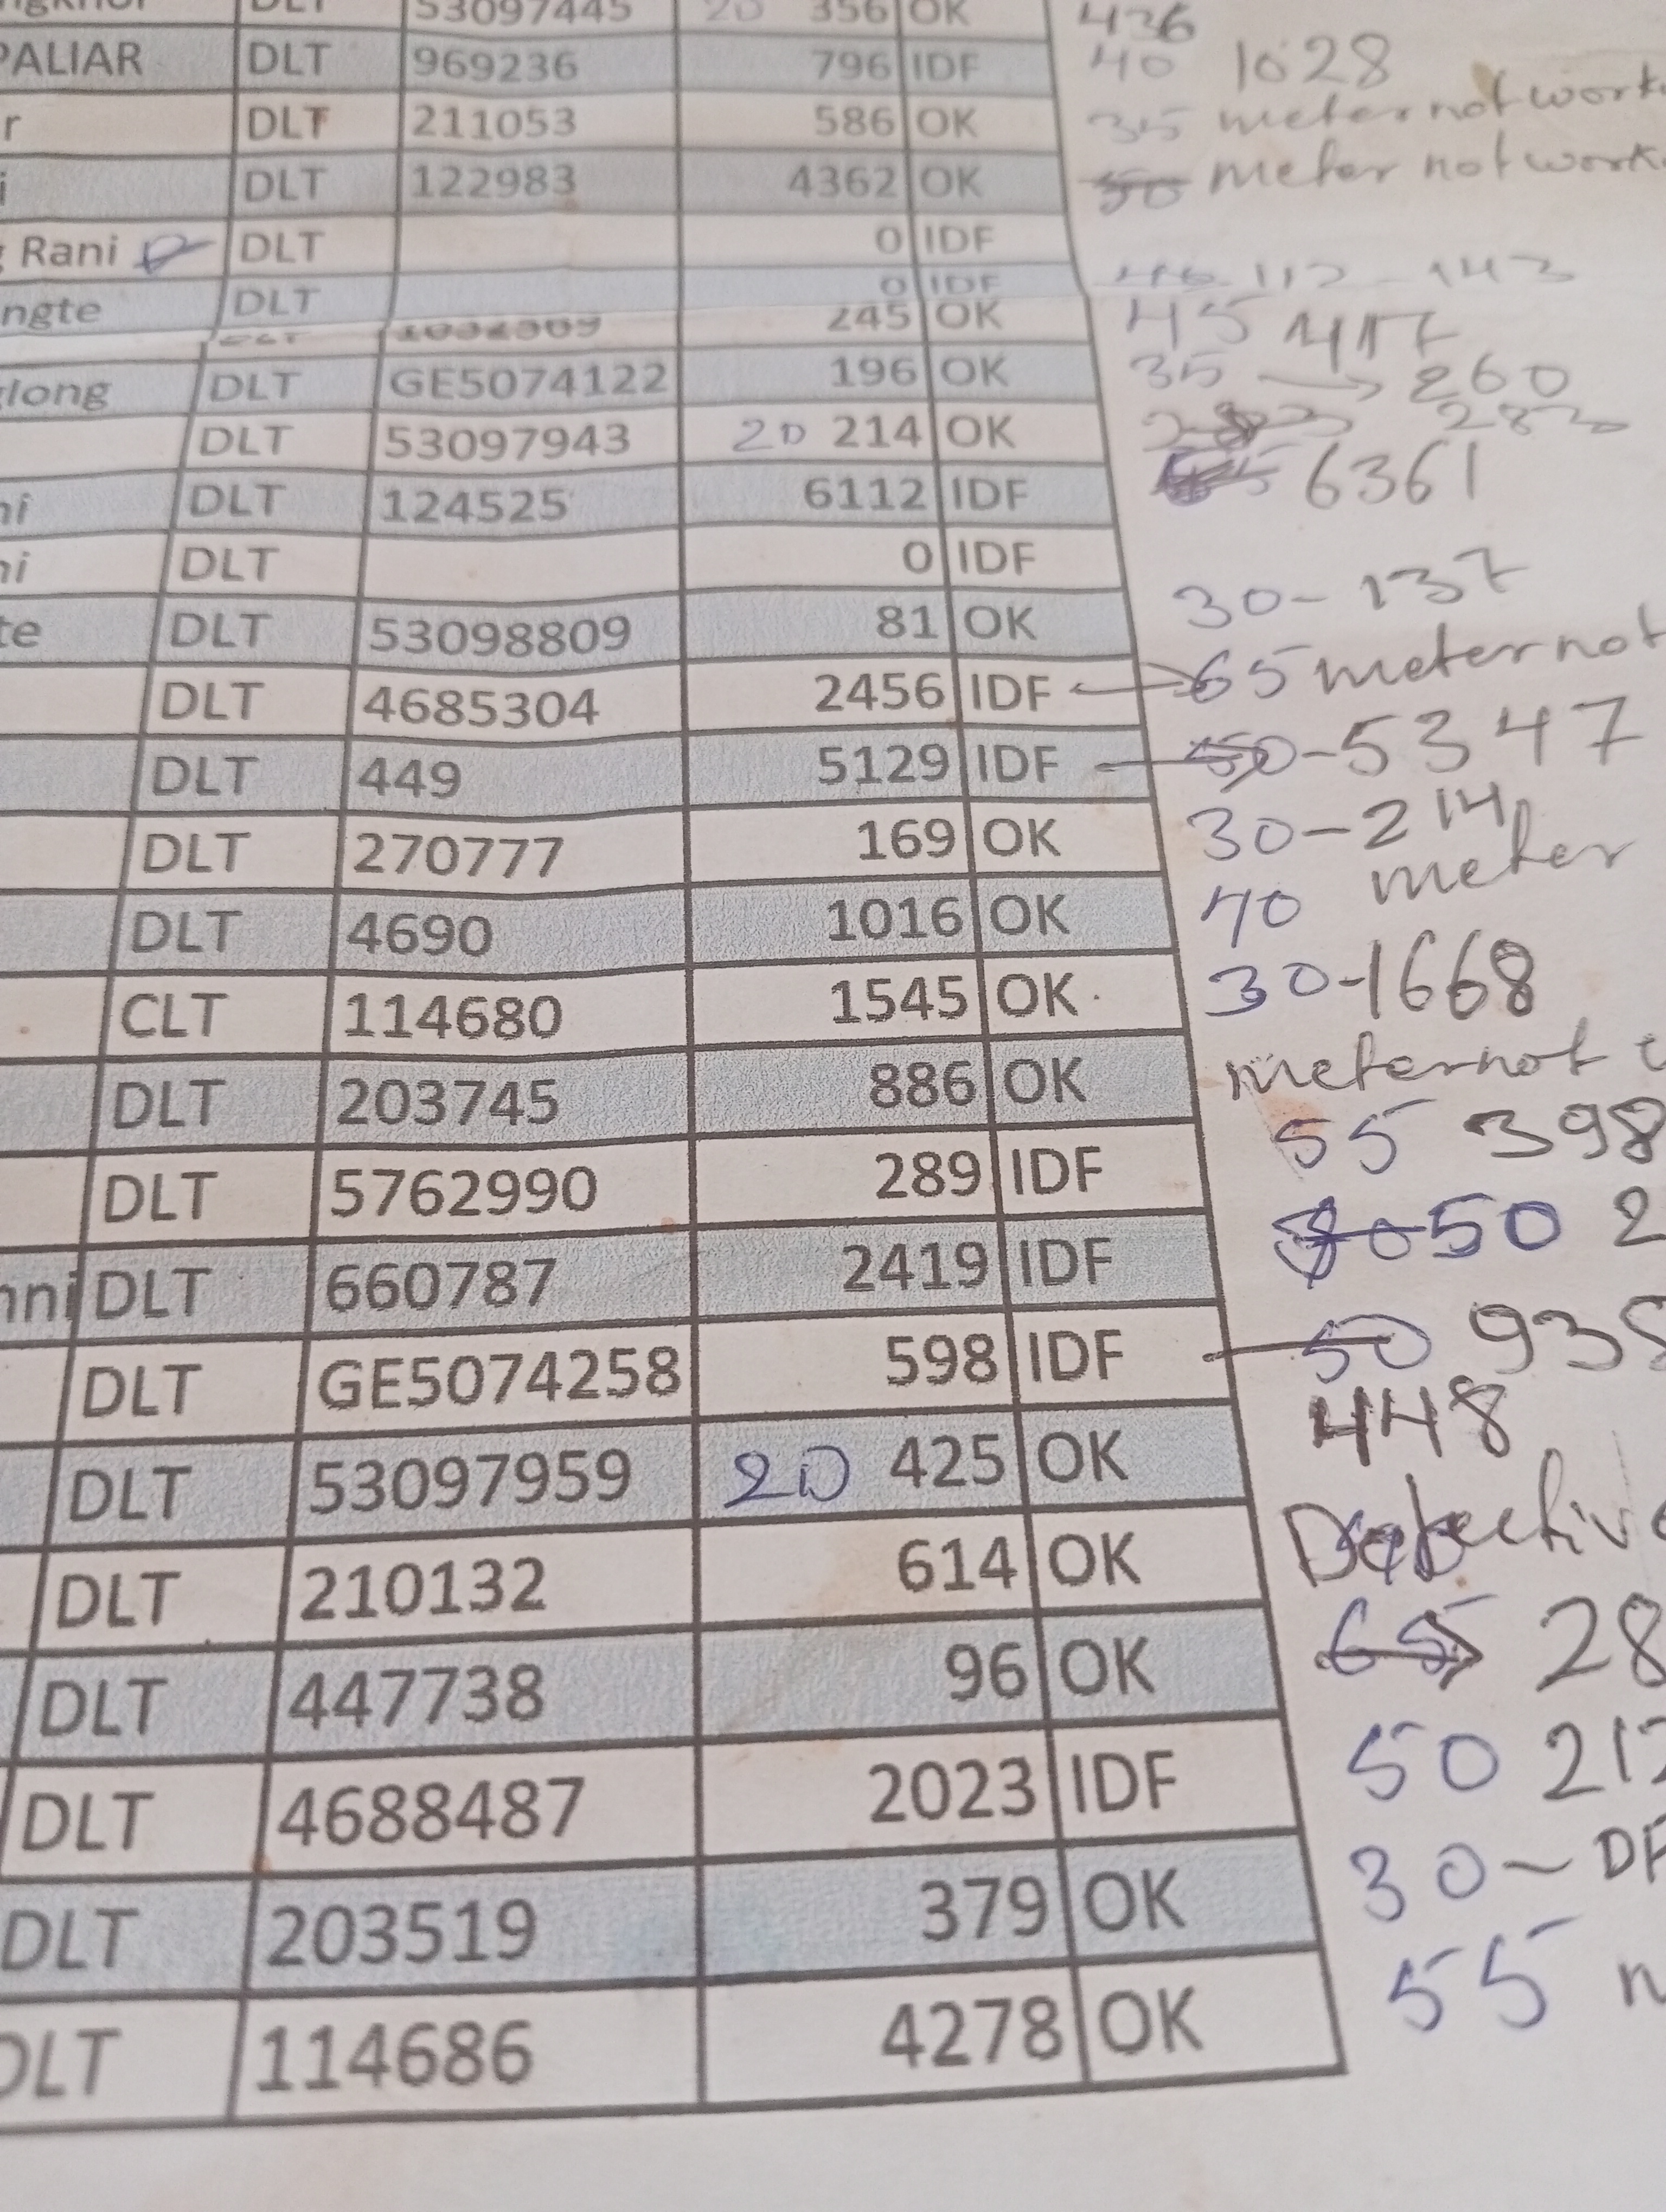 DLT 53097445 20 356 OK 436
PALIAR DLT 969236 796 IDF 40 1028
r DLT 211053 586 OK 35 meter not work
i DLT 122983 4362 OK 50 meter not work
Rani DLT 0 IDF
ngte DLT 0 IDF 112 - 143
245 OK 45 417
glong DLT GE5074122 196 OK 35 260
DLT 53097943 20 214 OK 283
ni DLT 124525 6112 IDF 6361
ni DLT 0 IDF
te DLT 53098809 81 OK 30-137
DLT 4685304 2456 IDF 65 meter not
DLT 449 5129 IDF 50-5347
DLT 270777 169 OK 30-214
DLT 4690 1016 OK 40 meter
CLT 114680 1545 OK 30-1668
DLT 203745 886 OK meter not
DLT 5762990 289 IDF 55 398
nni DLT 660787 2419 IDF 50 2
DLT GE5074258 598 IDF 50 938
DLT 53097959 20 425 OK 448
DLT 210132 614 OK Defective
DLT 447738 96 OK 65 28
DLT 4688487 2023 IDF 50 212
DLT 203519 379 OK 30-DF
DLT 114686 4278 OK 55